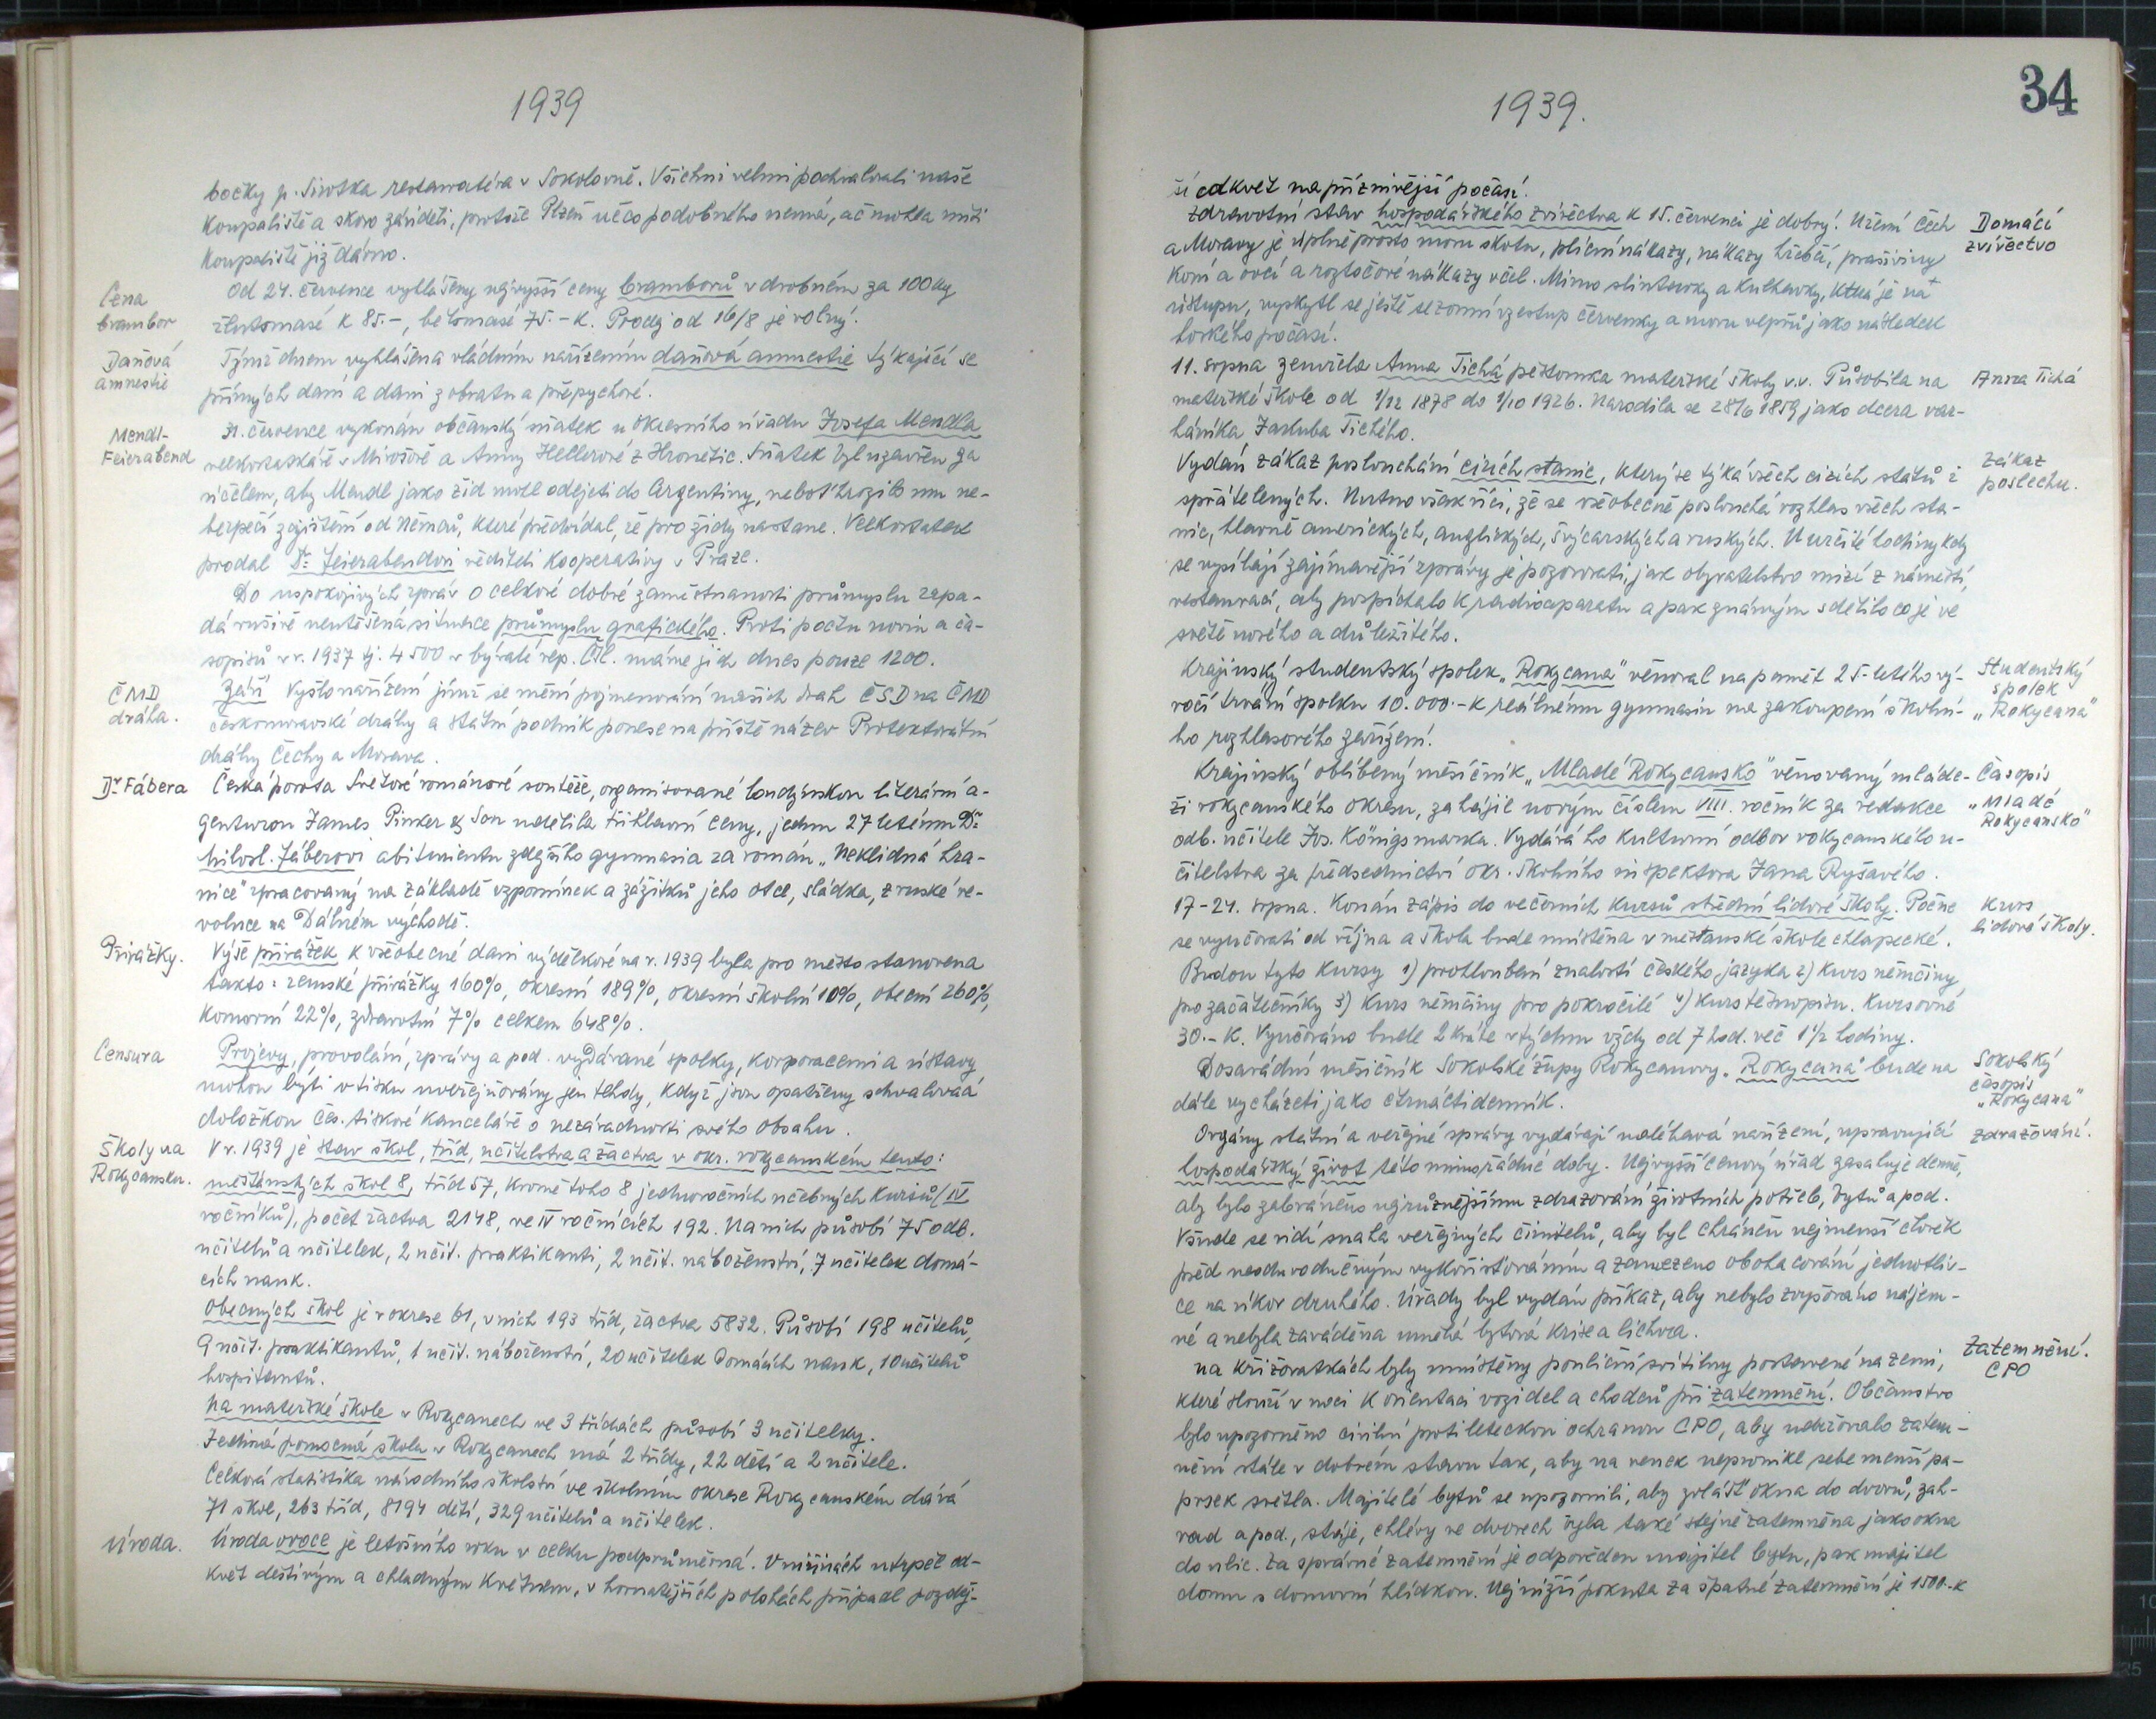 1939
bočky p. Sirotka restauratéra v Sokolovně. Všichni velmi pochvalovali naše
koupaliště a skoro záviděli, protože Plzeň něco podobného nemá, ač mohla míti
koupaliště již dávno.
Cena
brambor
Od 24. července vyhlášeny nejvyšší ceny bramborů v drobném za 100 kg
žlutomasé K 85.-, bělomasé 75.- K. Prodej od 16/8 je volný.
Daňová
amnestie
Týmž dnem vyhlášena vládním nařízením daňová amnestie týkající se
přímých daní a daní z obratu a přepychové.
Mendl-
Feierabend
31. července vykonán občanský sňatek u okresního úřadu Josefa Mendla
velkostatkáře v Mirošově a Anny Hellerové z Hronětic. Sňatek byl uzavřen za
účelem, aby Mendl jako žid mohl odejeti do Argentiny, neboť hrozilo mu ne-
bezpečí zajištění od Němců, které předvídal, že pro židy nastane. Velkostatek
prodal Dr Feierabendovi řediteli Kooperativy v Praze.
Do uspokojivých zpráv o celkové dobré zaměstnanosti průmyslu zapa-
dá rušivě neutěšená situace průmyslu grafického. Proti počtu novin a ča-
sopisů v r. 1937 tj. 4500 v bývalé rep. Čsl. máme jich dnes pouze 1200.
ČMD
dráha.
Září Vyšlo nařízení jímž se mění pojmenování našich drah ČSD na ČMD
českomoravské dráhy a státní podnik ponese na příště název Protektorátní
dráhy Čechy a Morava.
Dr Fábera
Česká porota Světové románové soutěže, organisované londýnskou literární a-
genturou James Pinker & Son udělila tři hlavní ceny, jednu 27 letému Dr
Milosl. Fáberovi abiturientu zdejšího gymnasia za román „Neklidná hra-
nice" zpracovaný na základě vzpomínek a zážitků jeho otce, sládka, z ruské re-
voluce na Dálném východě.
Přirážky.
Výše přirážek k všeobecné dani výdělkové na r. 1939 byla pro město stanovena
takto: zemské přirážky 160%, okresní 189%, okresní školní 10%, obecní 260%,
komorní 22%, zdravotní 7% celkem 648%.
Censura
Projevy, provolání, zprávy a pod. vydávané spolky, korporacemi a ústavy
mohou býti v tisku uveřejňovány jen tehdy, když jsou opatřeny schvalovací
doložkou čes. tiskové kanceláře o nezávadnosti svého obsahu.
Školy na
Rokycansku.
V r. 1939 je stav škol, tříd, učitelstva a žactva v okr. rokycanském tento:
měšťanských škol 8, tříd 57, kromě toho 8 jednoročních učebných kursů (IV
ročníků), počet žactva 2148, ve IV ročnících 192. Na nich působí 75 odb.
učitelů a učitelek, 2 učit. praktikanti, 2 učit. náboženství, 7 učitelek domá-
cích nauk.
Obecných škol je v okrese 61, v nich 193 tříd, žactva 5832. Působí 198 učitelů,
9 učit. praktikantů, 1 učit. náboženství, 20 učitelek domácích nauk, 10 učitelů
hospitantů.
Na mateřské škole v Rokycanech ve 3 třídách působí 3 učitelky.
Jediná pomocná škola v Rokycanech má 2 třídy, 22 dětí a 2 učitele.
Celková statistika národního školství ve školním okrese Rokycanském dává
71 škol, 263 tříd, 8194 dětí, 329 učitelů a učitelek.
Úroda.
Úroda ovoce je letošního roku v celku podprůměrná. V nížinách utrpěl od-
květ deštivým a chladným květnem, v hornatějších polohách připadl pozděj-
34
1939.
ší odkvět na příznivější počasí.
Domácí
zvířectvo
Zdravotní stav hospodářského zvířectva k 15. červenci je dobrý. Území Čech
a Moravy je úplně prosto moru skotu, plicní nákazy, nákazy hřebčí, prašiviny
koní a ovcí a roztočové nákazy včel. Mimo slintavky a kulhavky, která je na
ústupu, vyskytl se ještě sezonní vzestup červenky a moru vepřů jako následek
horkého počasí.
Anna Tichá
11. srpna zemřela Anna Tichá pěstounka mateřské školy v.v. Působila na
mateřské škole od 1/12 1878 do 1/10 1926. Narodila se 28/6 1859 jako dcera var-
háníka Jakuba Tichého.
Zákaz
poslechu.
Vydán zákaz poslouchání cizích stanic, který se týká všech cizích států i
spřátelených. Nutno však říci, že se všeobecně poslouchá rozhlas všech sta-
nic, hlavně amerických, anglických, švýcarských a ruských. V určité hodiny kdy
se vysílají zajímavější zprávy je pozorovati, jak obyvatelstvo mizí z náměstí,
restaurací, aby pospíchalo k radioaparatu a pak známým sdělilo co je ve
světě nového a důležitého.
Studentský
spolek
„Rokycana"
Krajinský studentský spolek „Rokycana" věnoval na paměť 25-letého vý-
ročí trvání spolku 10.000.-K reálnému gymnasiu na zakoupení školní-
ho rozhlasového zařízení.
Časopis
„Mladé
Rokycansko"
Krajinský oblíbený měsíčník „Mladé Rokycansko" věnovaný mláde-
ži rokycanského okresu, zahájil novým číslem VIII. ročník za redakce
odb. učitele Jos. Königsmarka. Vydává ho kulturní odbor rokycanského u-
čitelstva za předsednictví okr. školního inspektora Jana Ryšavého.
Kurs
lidové školy.
17-24. srpna. Konán zápis do večerních kursů střední lidové školy. Počne
se vyučovati od října a škola bude umístěna v měšťanské škole chlapecké.
Budou tyto kursy 1) prohloubení znalostí českého jazyka 2) kurs němčiny
pro začátečníky 3) kurs němčiny pro pokročilé 4) kurs těsnopisu. Kursovné
30.- K. Vyučováno bude 2 kráte v týdnu vždy od 7 hod. več 1 1/2 hodiny.
Sokolský
časopis
„Rokycana"
Dosavádní měsíčník Sokolské župy Rokycanovy „Rokycana" bude na
dále vycházeti jako čtrnáctidenník.
Zdražování.
Orgány státní a veřejné správy vydávají naléhavá nařízení, upravující
hospodářský život této mimořádné doby. Nejvyšší cenový úřad zasahuje denně,
aby bylo zabráněno nejrůznějšímu zdražování životních potřeb, bytů a pod.
Všude se vidí snaha veřejných činitelů, aby byl chráněn nejmenší člověk
před neodůvodněným vykořisťováním a zamezeno obohacování jednotliv-
ce na úkor druhého. Úřady byl vydán příkaz, aby nebylo zvyšováno nájem-
né a nebyla zaváděna umělá bytová krise a lichva.
Zatemnění.
CPO
Na křižovatkách byly umístěny pouliční svítilny postavené na zemi,
které slouží v noci k orientaci vozidel a chodců při zatemnění. Občanstvo
bylo upozorněno civilní protileteckou ochranou CPO, aby udržovalo zatem-
nění stále v dobrém stavu tak, aby na venek neproniklo sebe menší pa-
prsek světla. Majitelé bytů se upozornili, aby zvlášť okna do dvorů, zah-
rad a pod., stáje, chlévy ve dvorech byla také stejně zatemněna jako okna
do ulic. Za správné zatemnění je odpověden majitel bytu, pak majitel
domu s domovní hlídkou. Nejnižší pokuta za špatné zatemnění je 1500.-K